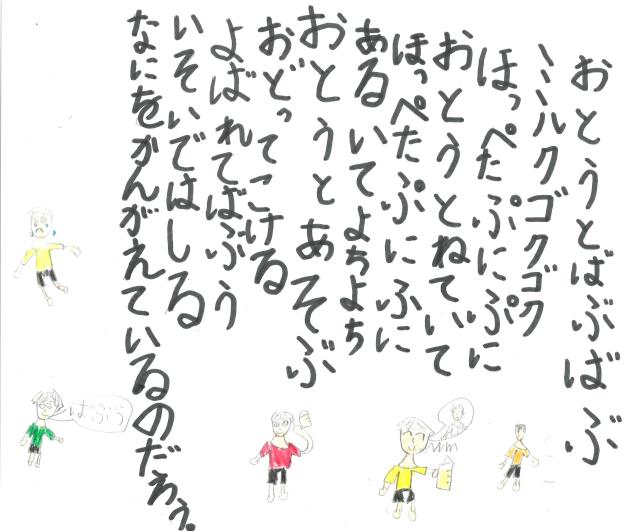 おとうとばぶばぶ
ミルクゴクゴク
ほっぺたぷにぷに
おとうとねていて
ほっぺたぷにふに
あるいてよちよち
おとうとあそぶ
おどってこける
よばれてばぶう
いそいではしる
なにをかんがえているのだろう。
ばぶう